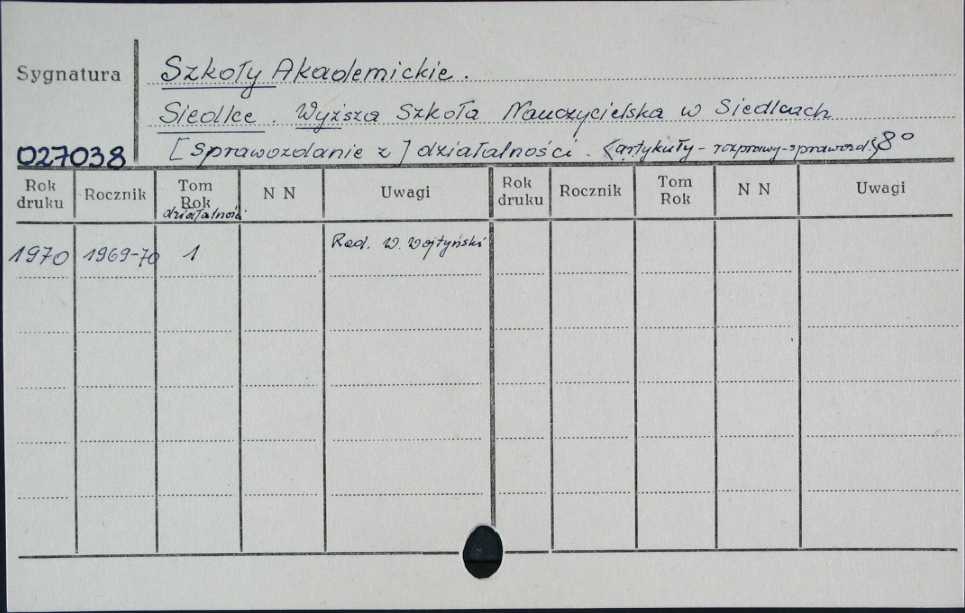 Sygnatura Szkoły Akademickie.
Siedlce. Wyższa Szkoła Nauczycielska w Siedlcach
027038 [Sprawozdanie z] działalności. <artykuły - rozprawy - sprawozd.> 8°
Rok druku Rocznik Tom Rok działalności N N Uwagi Rok druku Rocznik Tom Rok N N Uwagi
1970 1969-70 1 Red. W. Wojtyński